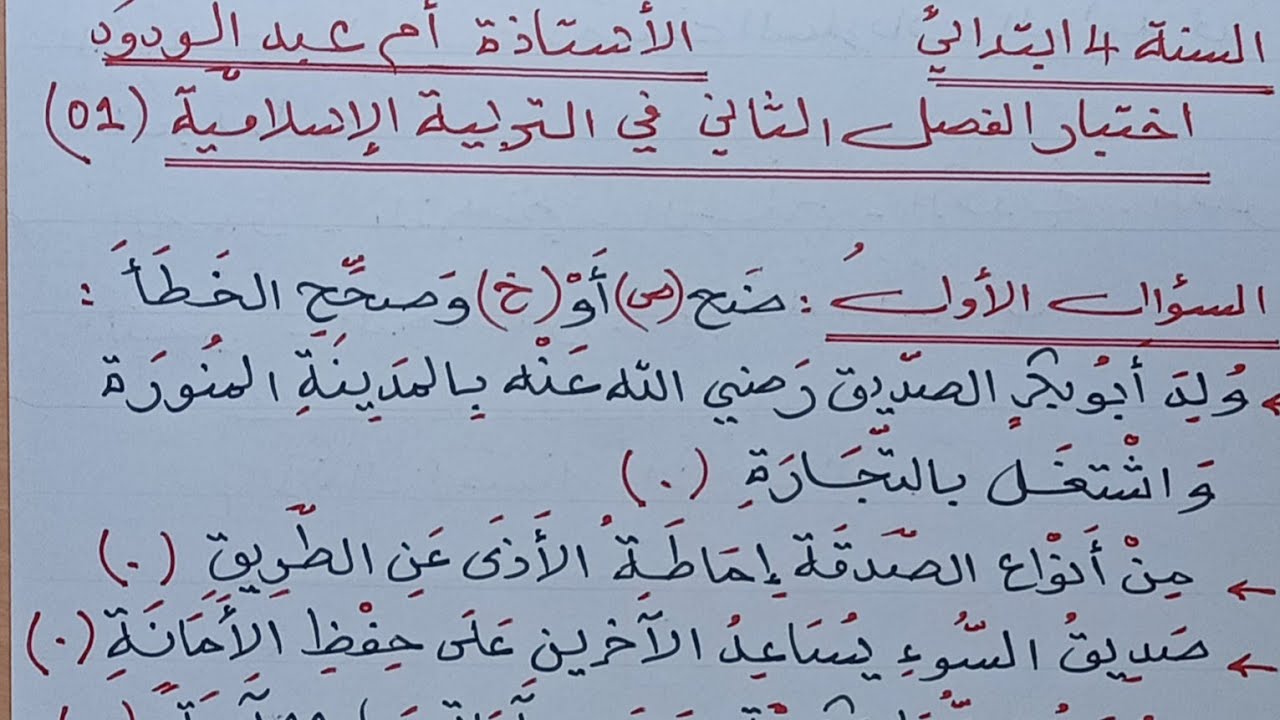 السنة 4 ابتدائي الأستاذة أم عبد الودود
اختبار الفصل الثاني في التربية الإسلاميّة (01)
السؤال الأولُ : ضَع (ص) أَوْ (خ) وَصحِّح الخَطَأَ :
وُلِدَ أَبُو بكرٍ الصدّيق رَضي الله عَنْه بِالمَدِينَةِ المنُورَة
وَ اشْتغَل بالتِّجَارَةِ (.)
مِنْ أَنْوَاع الصّدَقَة إِمَاطَةُ الأَذَى عَنِ الطَّرِيقِ (.)
صَدِيقُ السُّوءِ يُسَاعِدُ الآخرِينَ عَلَى حِفْظِ الأَمَانَةِ (.)